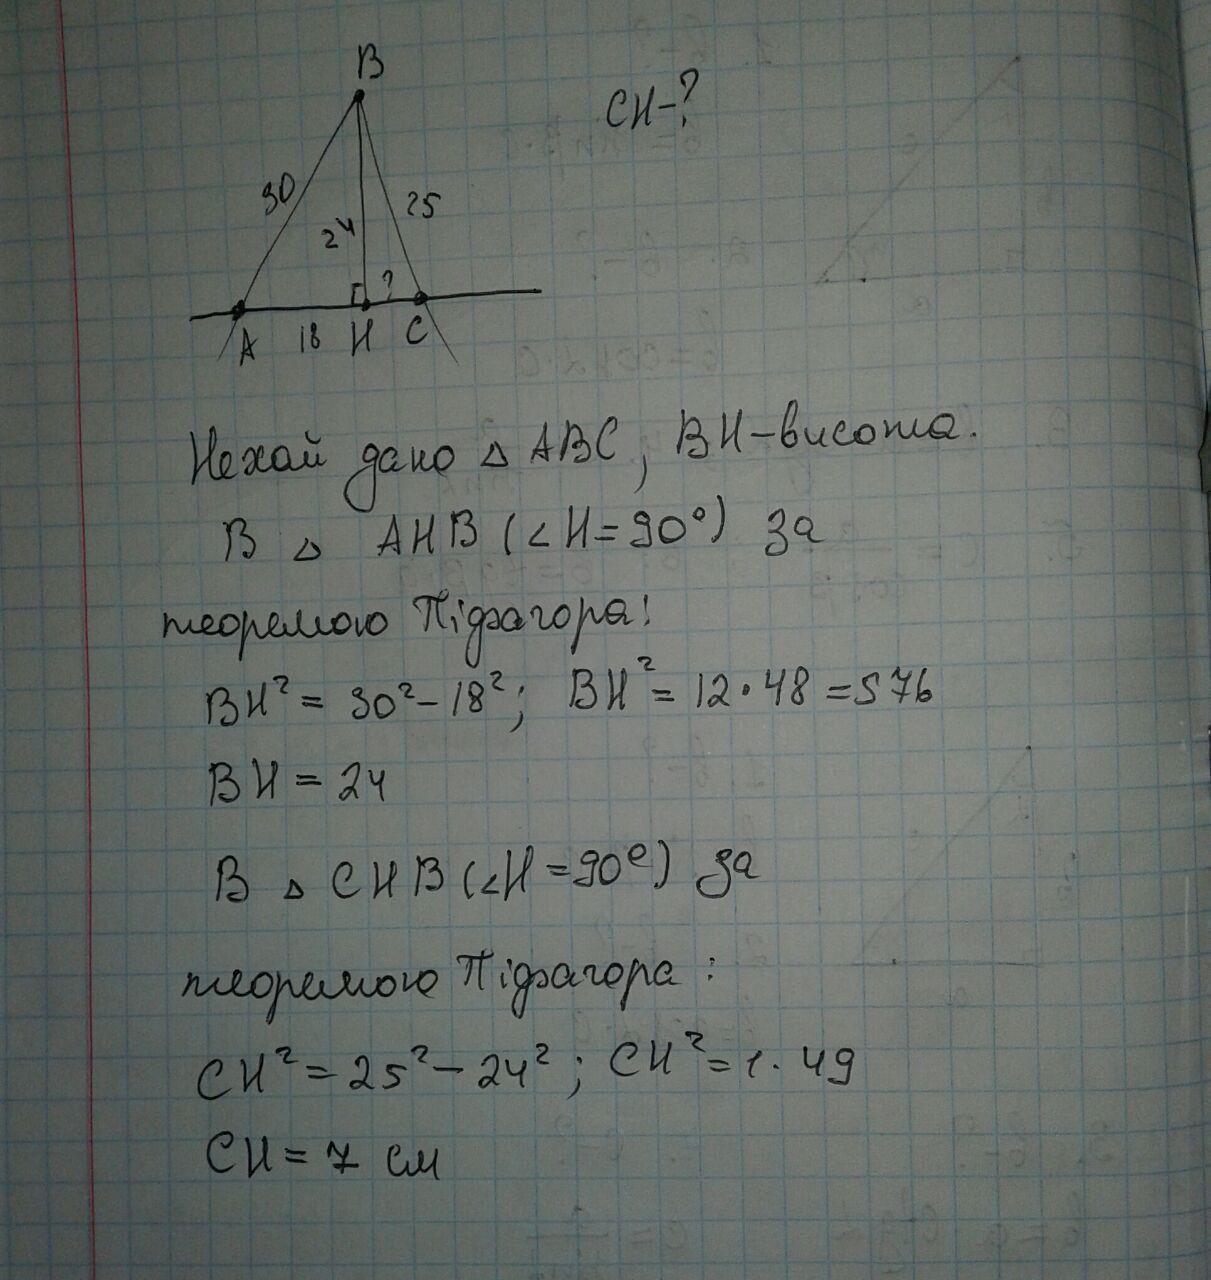 B
CH-?
30
25
24
?
A 18 H C
Нехай дано △ ABC, BH-висота.
В △ AHB (∠H=90°) за
теоремою Піфагора:
BH² = 30² - 18²; BH² = 12 · 48 = 576
BH = 24
В △ CHB (∠H=90°) за
теоремою Піфагора :
CH² = 25² - 24² ; CH² = 1 · 49
CH = 7 см